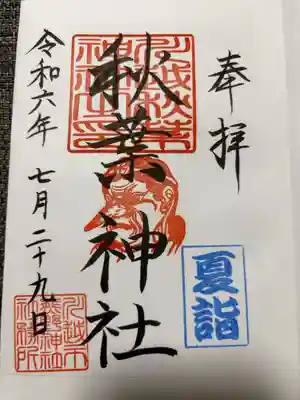 奉拝
秋葉神社
夏詣
令和六年 七月二十九日